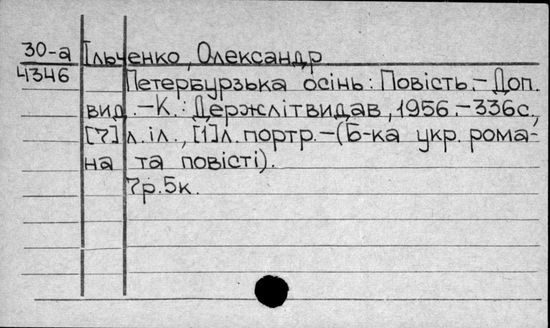 30-а Ільченко, Олександр
4346 Петербурзька осінь: Повість.-Доп.
вид.-К.: Держлітвидав, 1956.-336с,
[7] л.іл., [1]л.портр.-(Б-ка укр. рома-
на та повісті).
7р.5к.